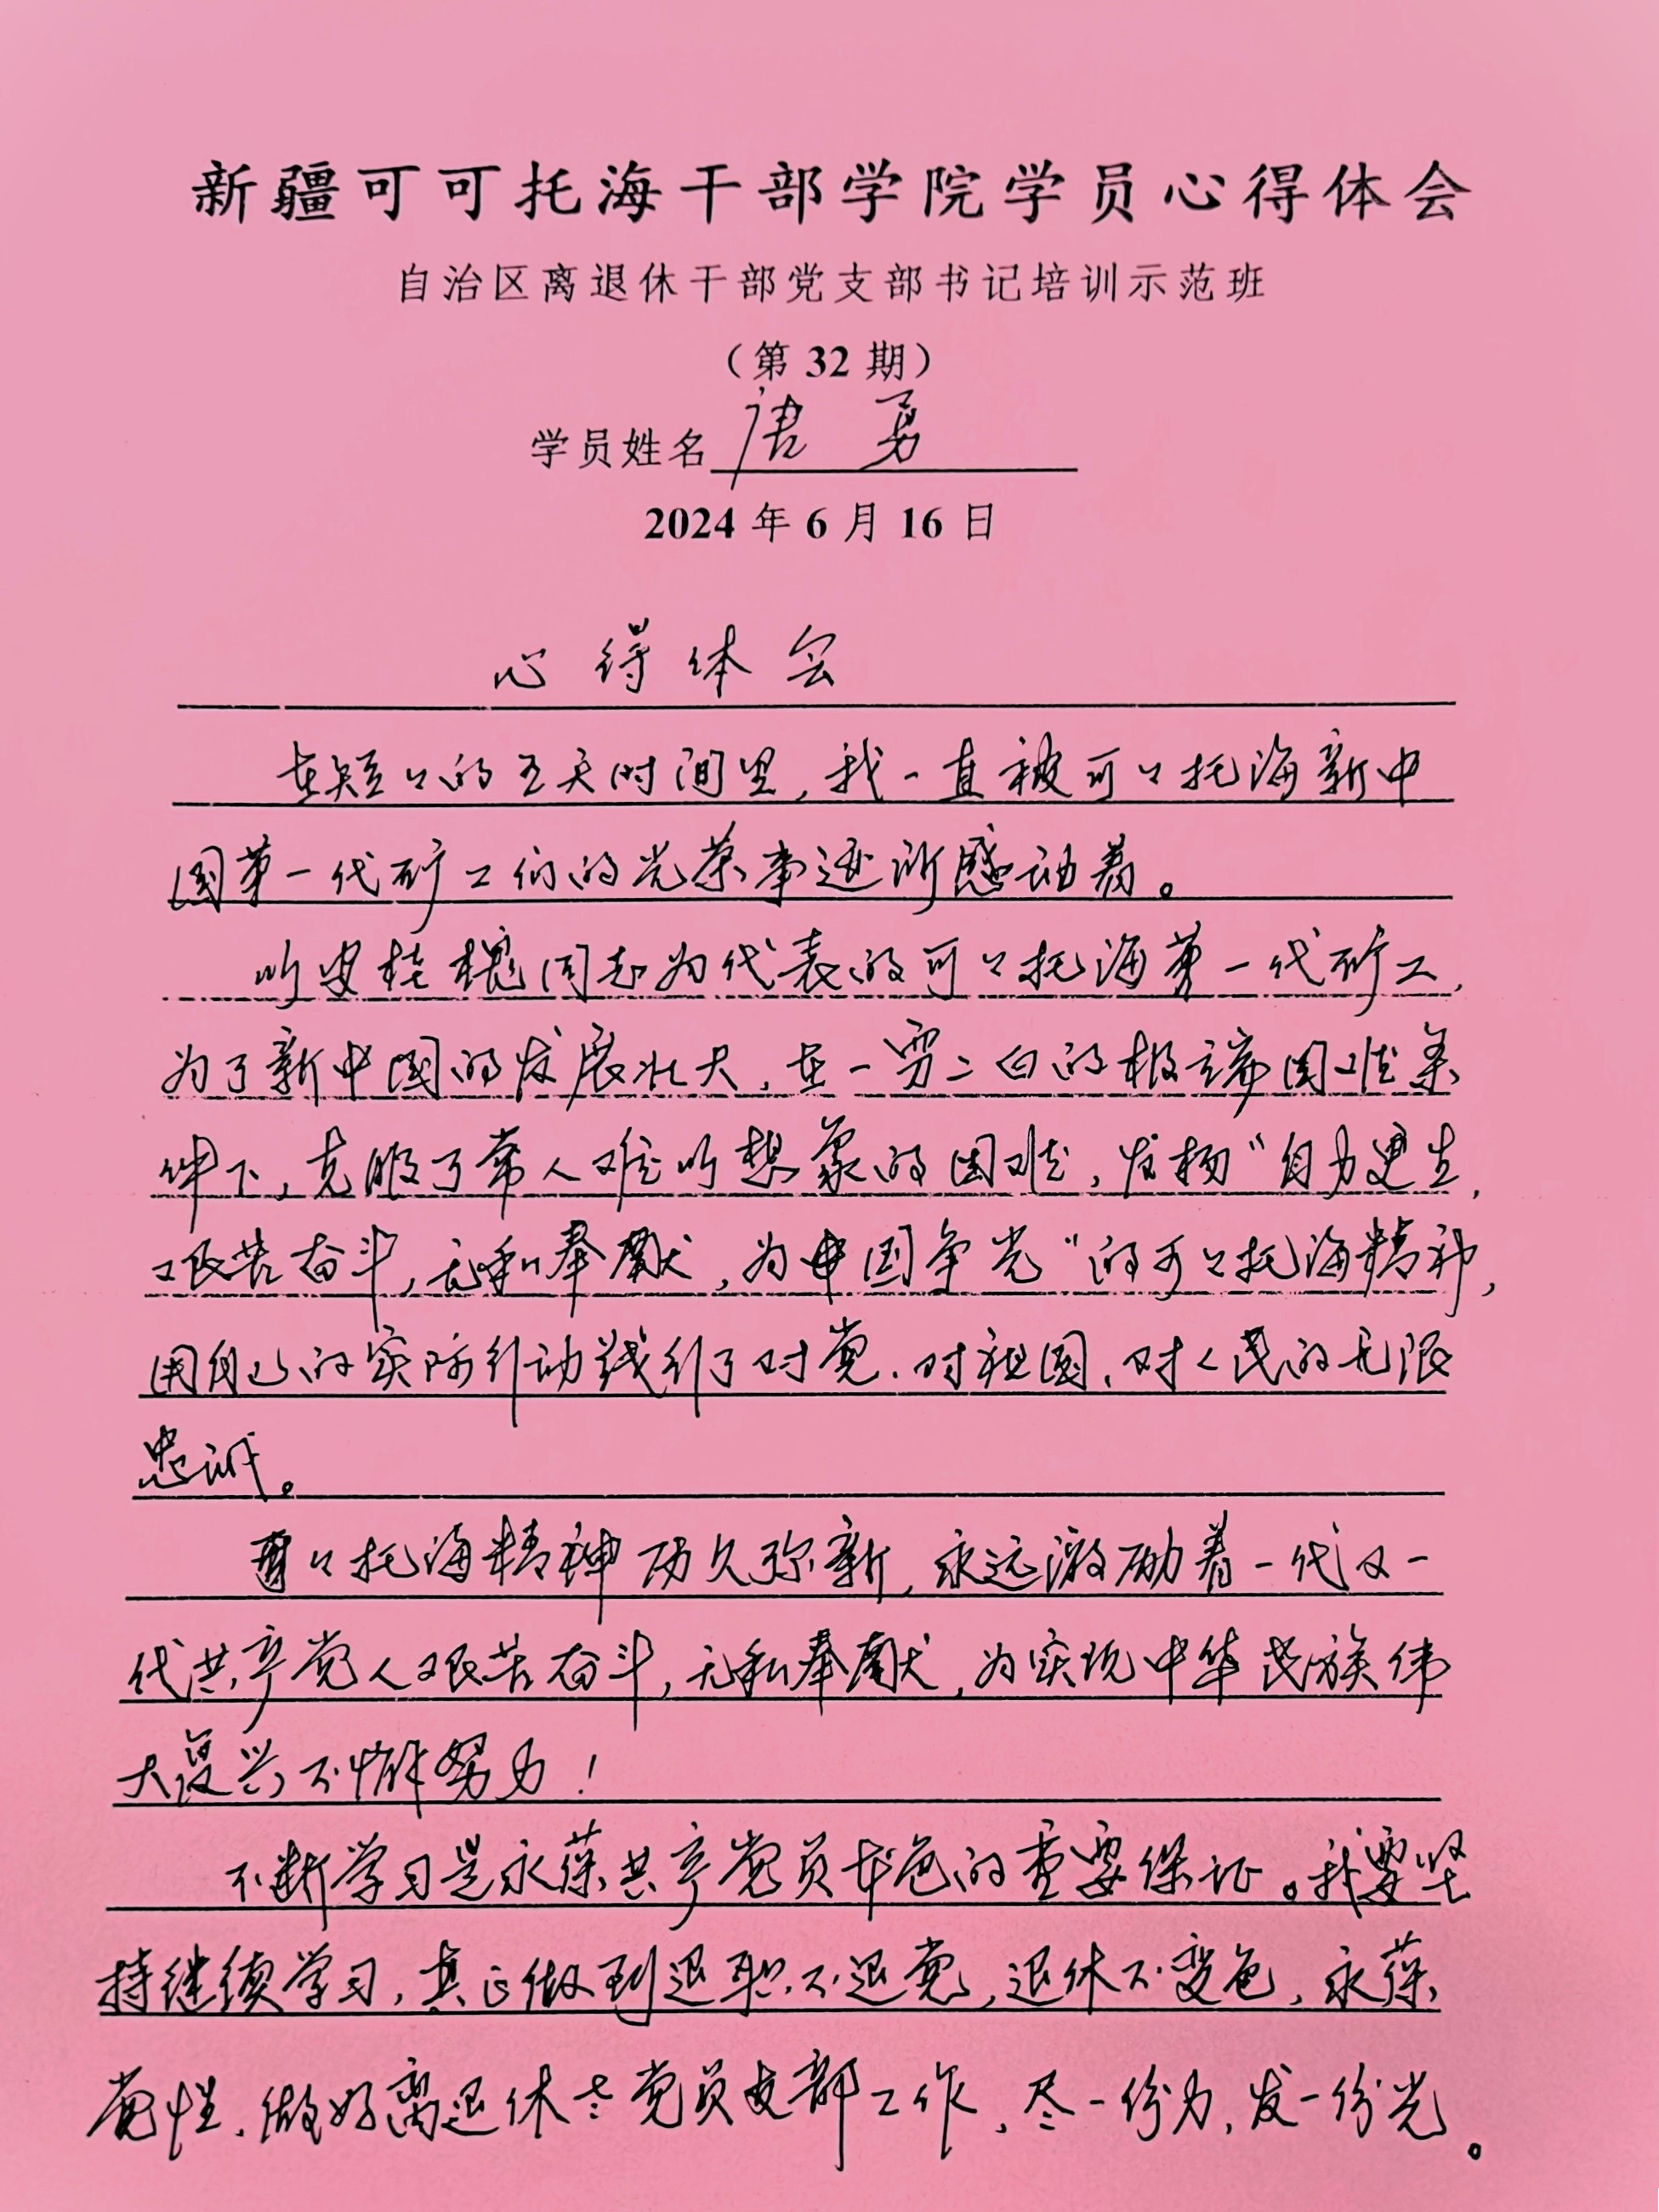 新疆可可托海干部学院学员心得体会
自治区离退休干部党支部书记培训示范班
（第 32 期）
学员姓名 唐勇
2024 年 6 月 16 日
心得体会
在短々的五天时间里，我一直被可々托海新中
国第一代矿工们的光荣事迹所感动着。
以安桂槐同志为代表的可々托海第一代矿工，
为了新中国的发展壮大，在一穷二白的极端困难条
件下，克服了常人难以想象的困难，发扬“自力更生，
艰苦奋斗，无私奉献，为中国争光”的可々托海精神，
用自己的实际行动践行了对党、对祖国、对人民的无限
忠诚。
可々托海精神历久弥新，永远激励着一代又一
代共产党人艰苦奋斗，无私奉献，为实现中华民族伟
大复兴不懈努力！
不断学习是永葆共产党员本色的重要保证。我要坚
持继续学习，真正做到退职不退党，退休不变色，永葆
党性，做好离退休老党员支部工作，尽一份力，发一份光。